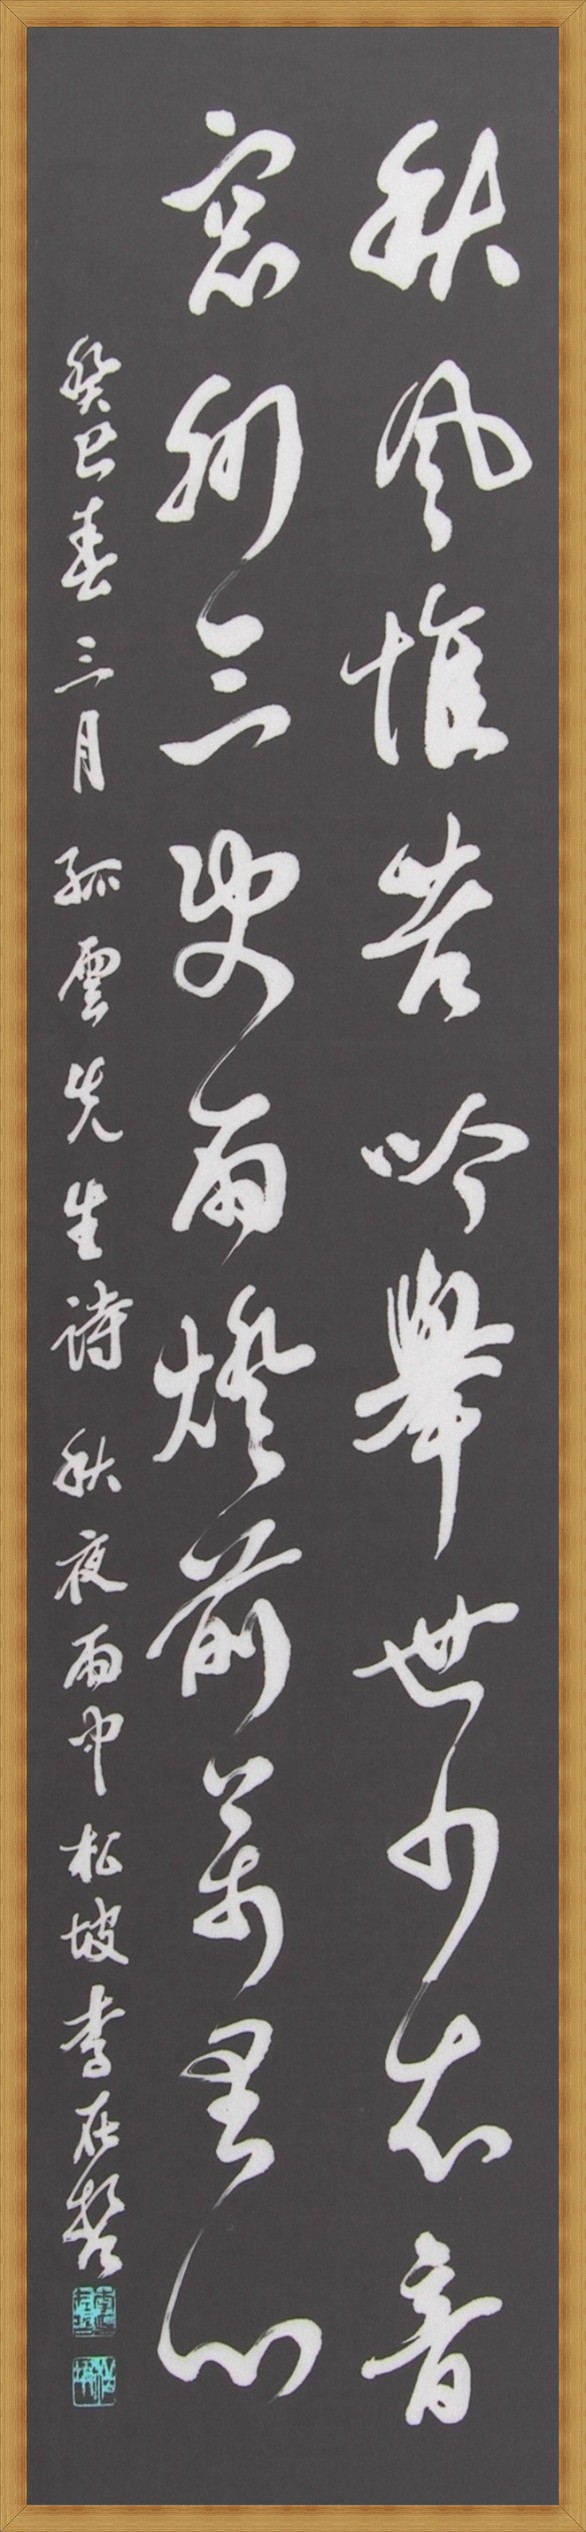 秋風惟苦吟擧世少知音
窓外三更雨燈前萬里心
癸巳春三月 孤雲先生詩 秋夜雨中 松坡 李在哲